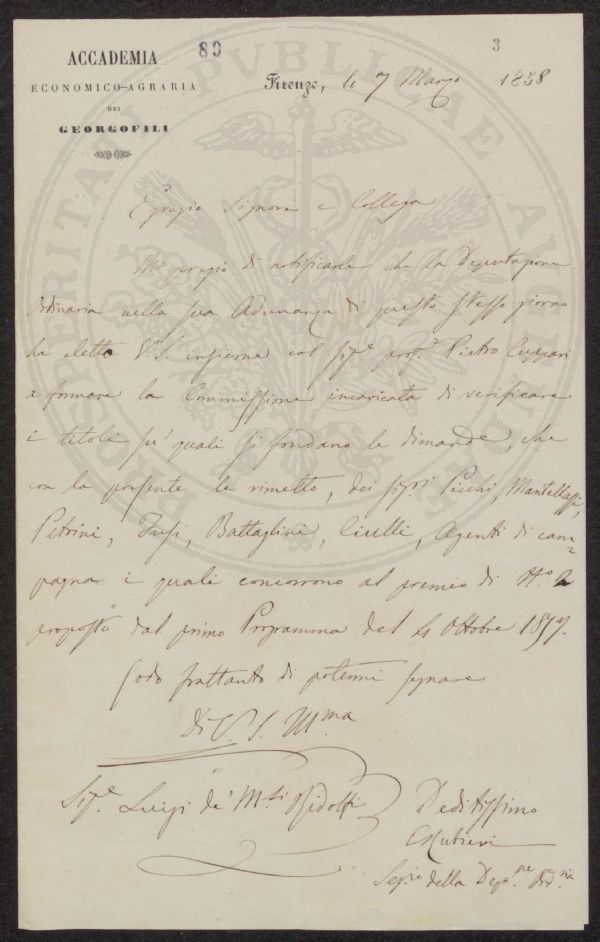 80
3
ACCADEMIA
ECONOMICO-AGRARIA
DEI
GEORGOFILI
Firenze, li 7 Marzo 1858
PROSPERITATI PVBLICAE AVGENDAE
Egregio Signore e Collega
Mi pregio di notificarle che la Deputazione
Ordinaria nella sua Adunanza di questo stesso giorno
ha eletto V.S. insieme col Sigre profre Pietro Cuppari
a formare la Commissione incaricata di verificare
i titoli su' quali si fondano le dimande, che
con la presente le rimetto, dei Sigri Picchi, Mantellassi,
Petrini, Battaglini, Agenti di cam=
pagna i quali concorrono al premio di No 2
proposto dal primo Programma del 4 Ottobre 1857.
Godo frattanto di potermi segnare
Di V. S. Illma
Sigre Luigi de' Msi Ridolfi
Deditissimo
C Rubieri
Segrio della Depne Ordria